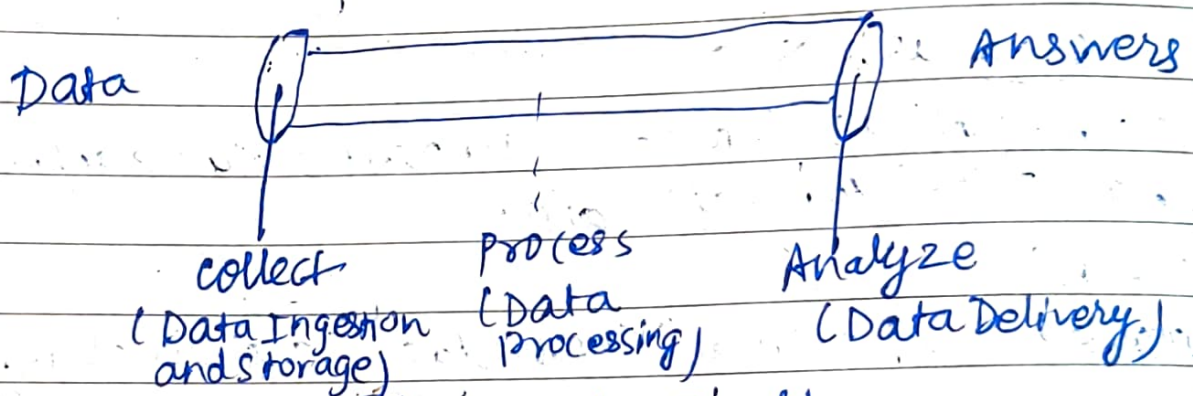 Data
Answers
collect
(Data Ingestion
and storage)
Process
(Data
processing)
Analyze
(Data Delivery.).